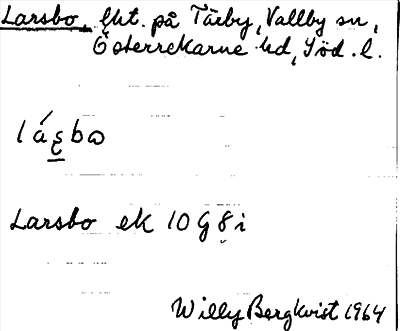 Larsbo, lht. på Tärby, Vallby sn,
Österrekarne hd, Söd. l.
lá̱ʂbω
Larsbo ek 10 G 8 i
Willy Bergkvist 1964